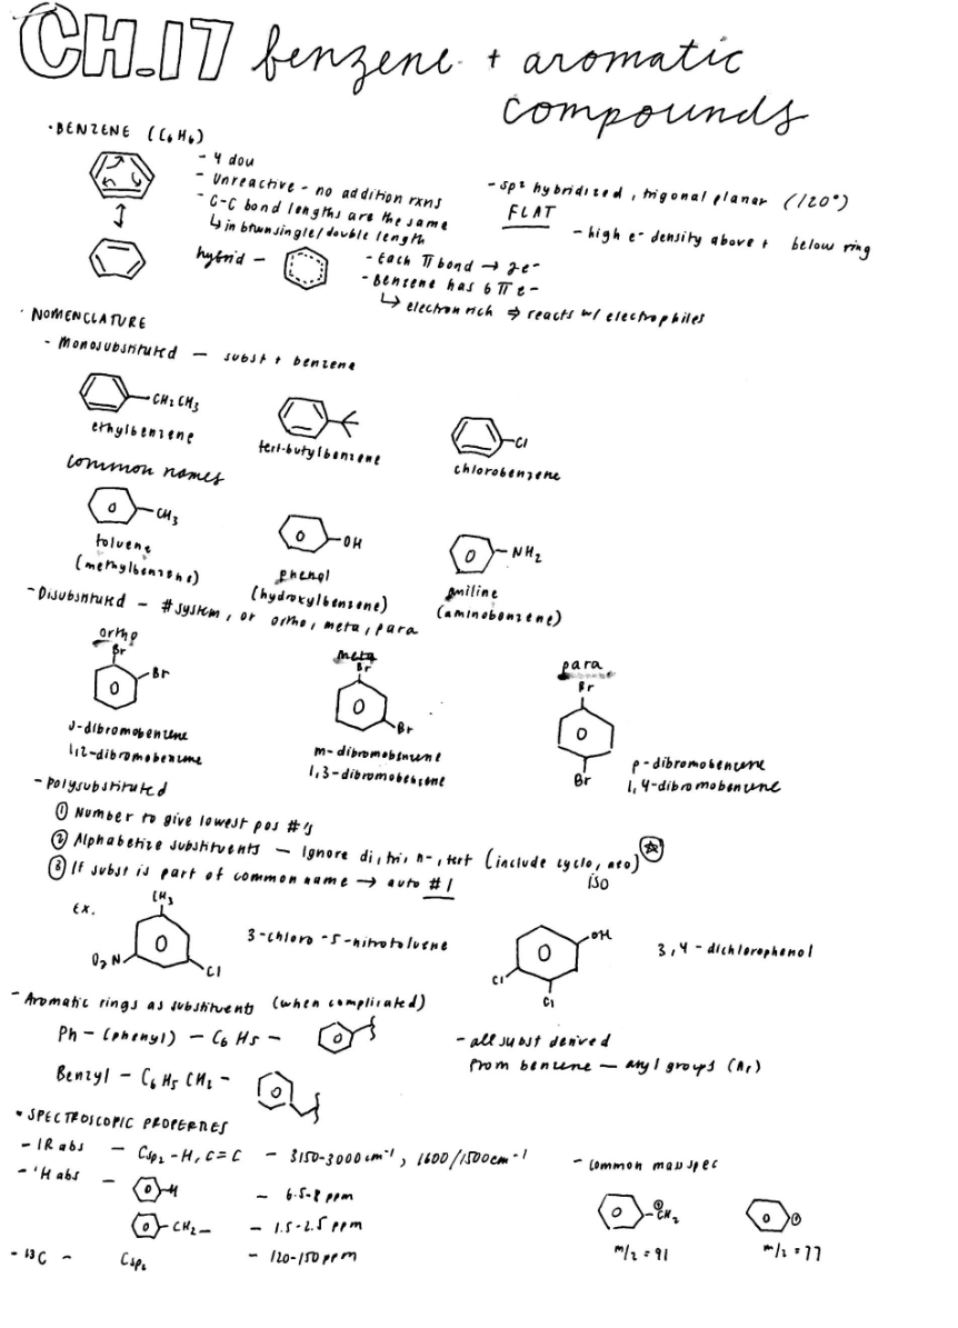 CH.17 benzene + aromatic
compounds
• BENZENE (C6H6)
- 4 dou
- Unreactive - no addition rxns
- C-C bond lengths are the same
↳ in btwn single/double length
- sp2 hybridized, trigonal planar (120°)
FLAT
- high e- density above + below ring
hybrid -
- Each π bond → 2e-
- Benzene has 6 π e-
↳ electron rich ⇒ reacts w/ electrophiles
• NOMENCLATURE
- Monosubstituted - subst + benzene
CH2CH3
ethylbenzene
tert-butylbenzene
Cl
chlorobenzene
common names
CH3
toluene
(methylbenzene)
OH
phenol
(hydroxylbenzene)
NH2
aniline
(aminobenzene)
- Disubstituted - # system, or ortho, meta, para
ortho
Br
Br
o-dibromobenzene
1,2-dibromobenzene
meta
Br
Br
m-dibromobenzene
1,3-dibromobenzene
para
Br
Br
p-dibromobenzene
1,4-dibromobenzene
- polysubstituted
① Number to give lowest pos #'s
② Alphabetize substituents - Ignore di, tri, n-, tert (include cyclo, neo)
iso
③ If subst is part of common name → auto #1
Ex.
CH3
O2N
Cl
3-chloro-5-nitrotoluene
OH
Cl
Cl
3,4-dichlorophenol
- Aromatic rings as substituents (when complicated)
Ph - (phenyl) - C6H5 -
Benzyl - C6H5CH2 -
- all subst derived
from benzene - aryl groups (Ar)
• SPECTROSCOPIC PROPERTIES
- IR abs - Csp2-H, C=C - 3150-3000 cm-1, 1600/1500 cm-1
- 1H abs -
H
- 6.5-8 ppm
CH2-
- 1.5-2.5 ppm
- 13C - Csp2 - 120-150 ppm
- Common mass spec
⊕CH2
m/z = 91
⊕
m/z = 77